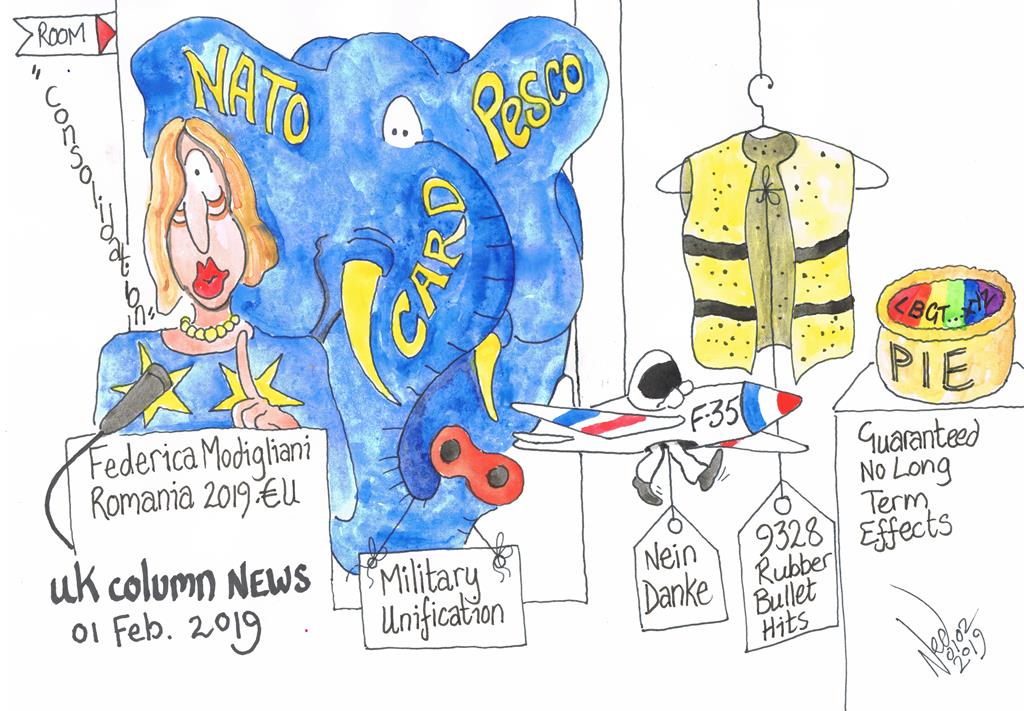 ROOM
"Consolidation"
NATO
PESCO
CARD
Federica Modigliani
Romania 2019.€U
UK COLUMN NEWS
01 Feb. 2019
Military
Unification
F-35
Nein
Danke
9328
Rubber
Bullet
Hits
LBGT...
PIE
Guaranteed
No Long
Term
Effects
01.02
2019